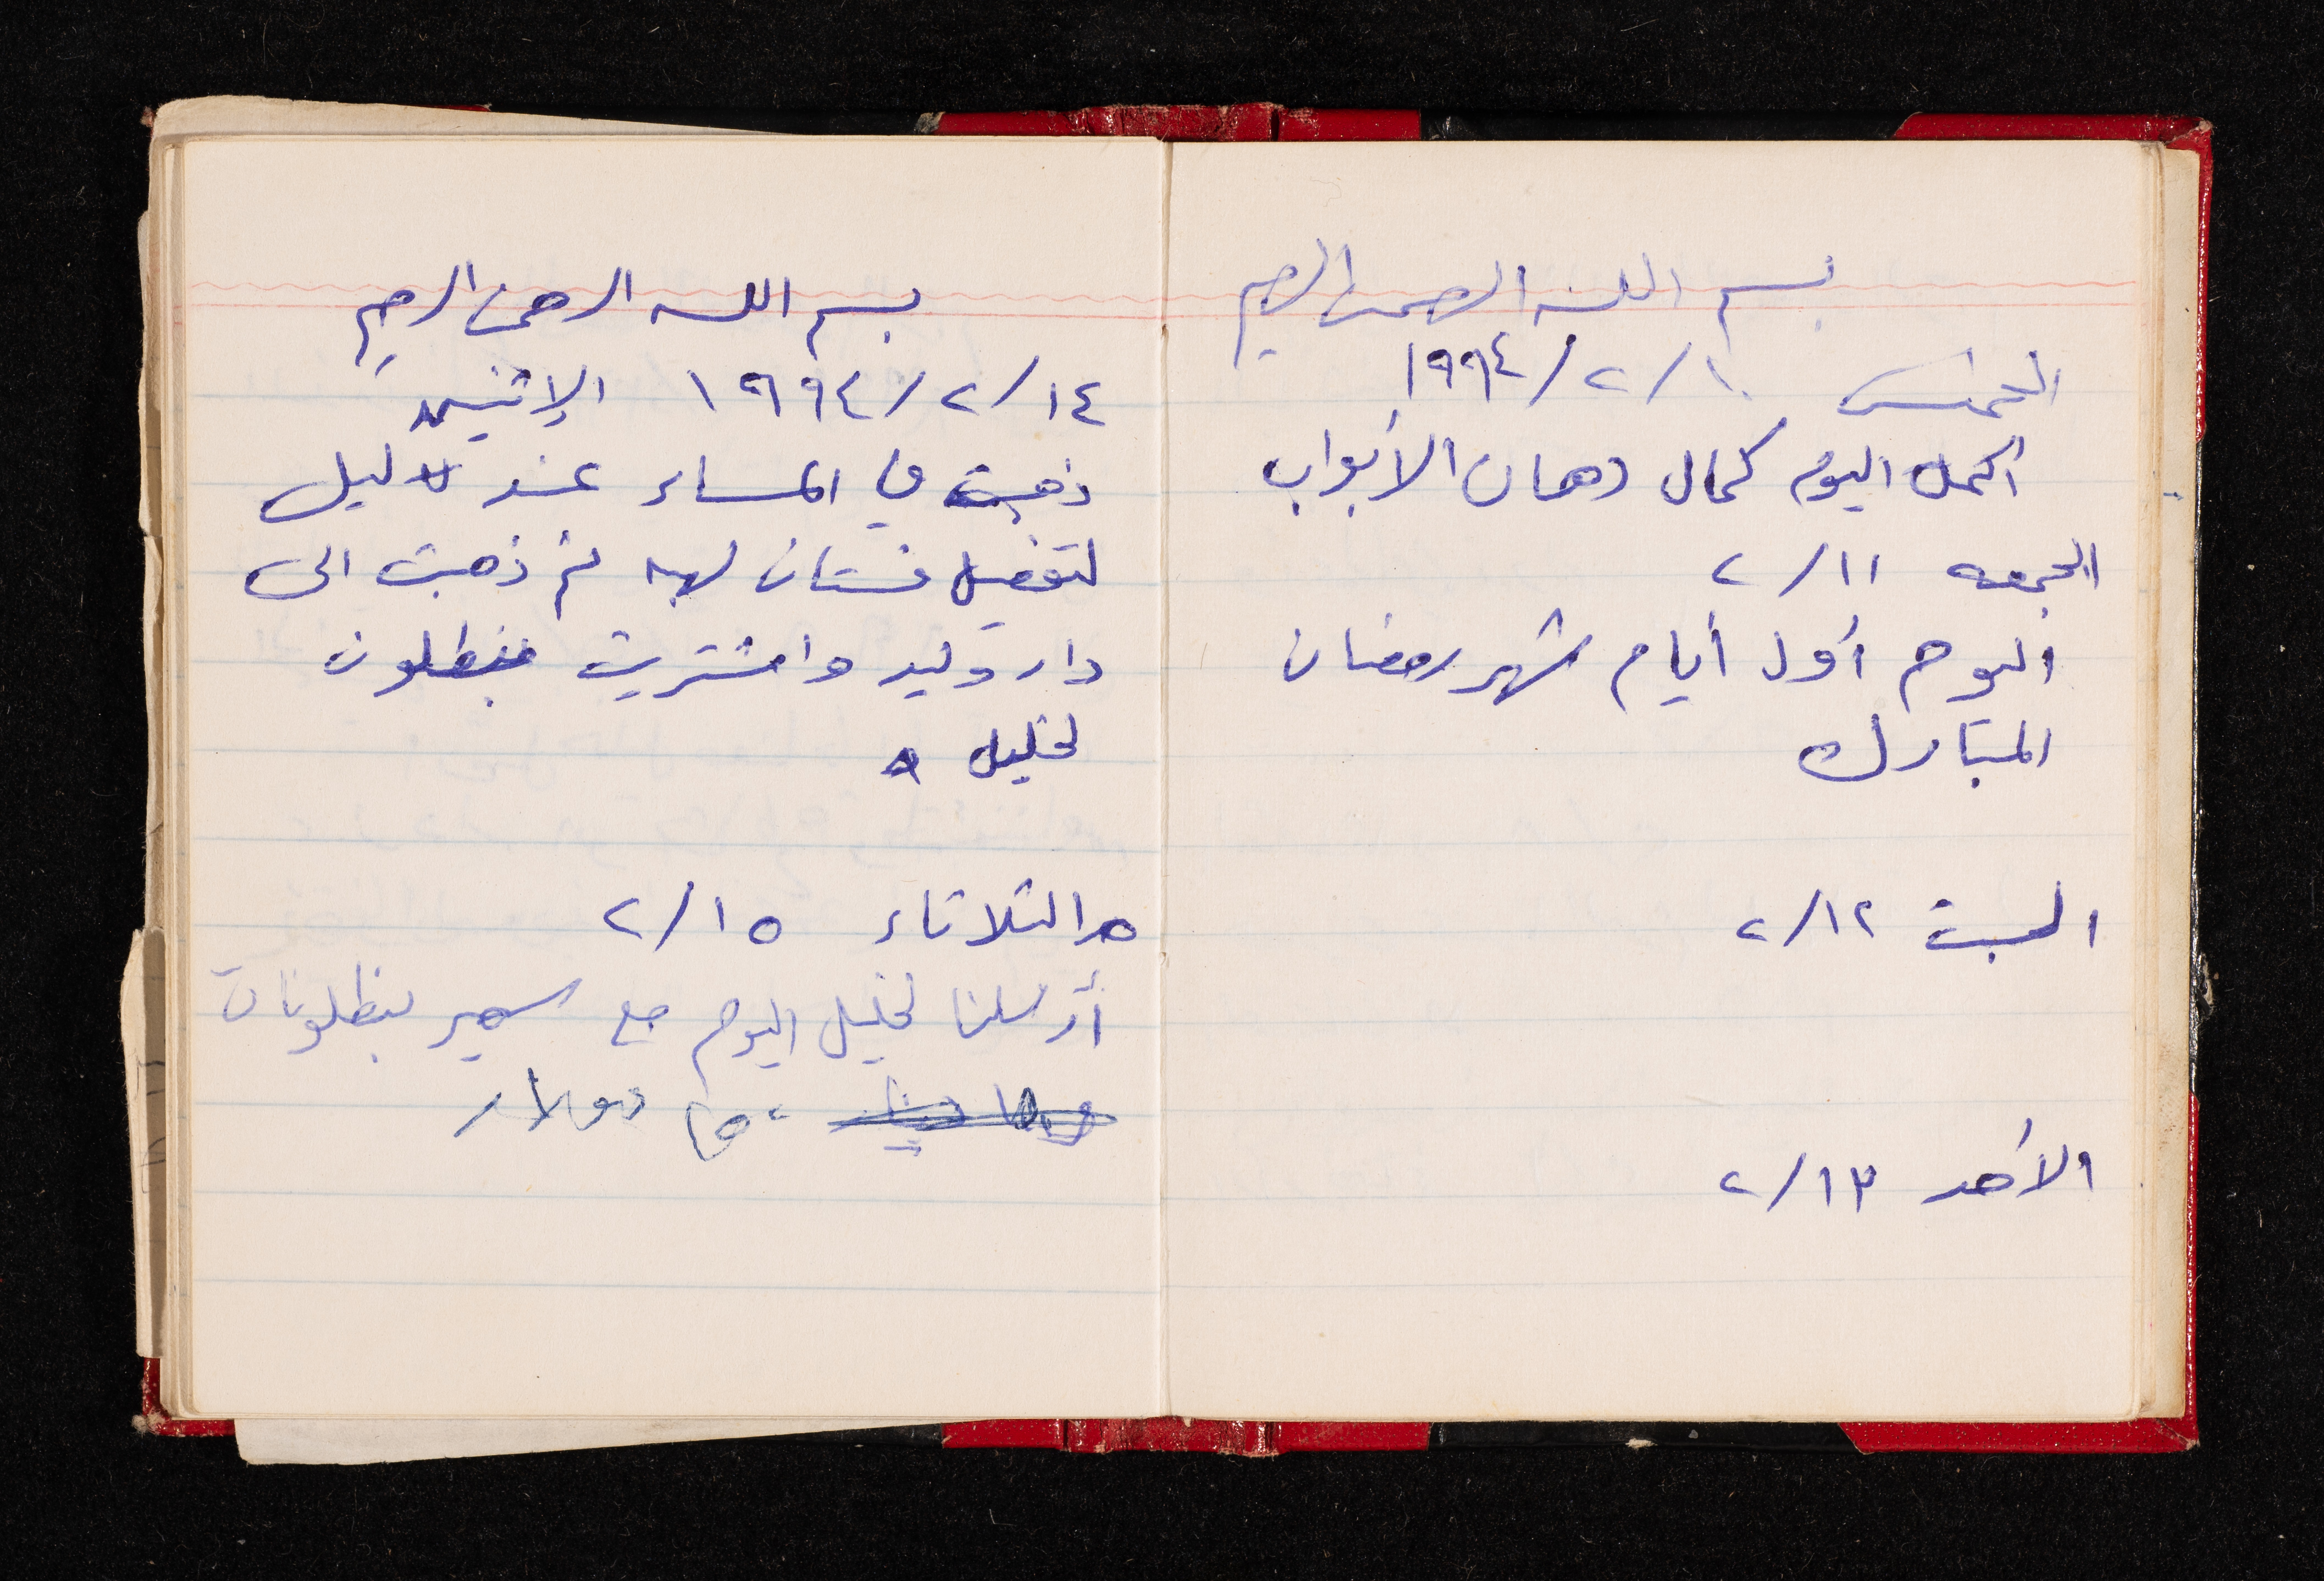 بسم الله الرحمن الرحيم
الخميس ١٠/٢/١٩٩٤
أكمل اليوم كمال دهان الأبواب
الجمعه ١١/٢
اليوم أول أيام شهر رمضان
المبارك
السبت ١٢/٢
الأحد ١٣/٢
بسم الله الرحمن الرحيم
١٤/٢/١٩٩٤ الإثنين
ذهبت في المساء عند
لتفصيل فستان لهبه ثم ذهبت الى
دار وليد واشتريت بنطلون
لخليل
الثلاثاء ١٥/٢
أرسلنا لخليل اليوم مع سمير بنطلونات
دولار